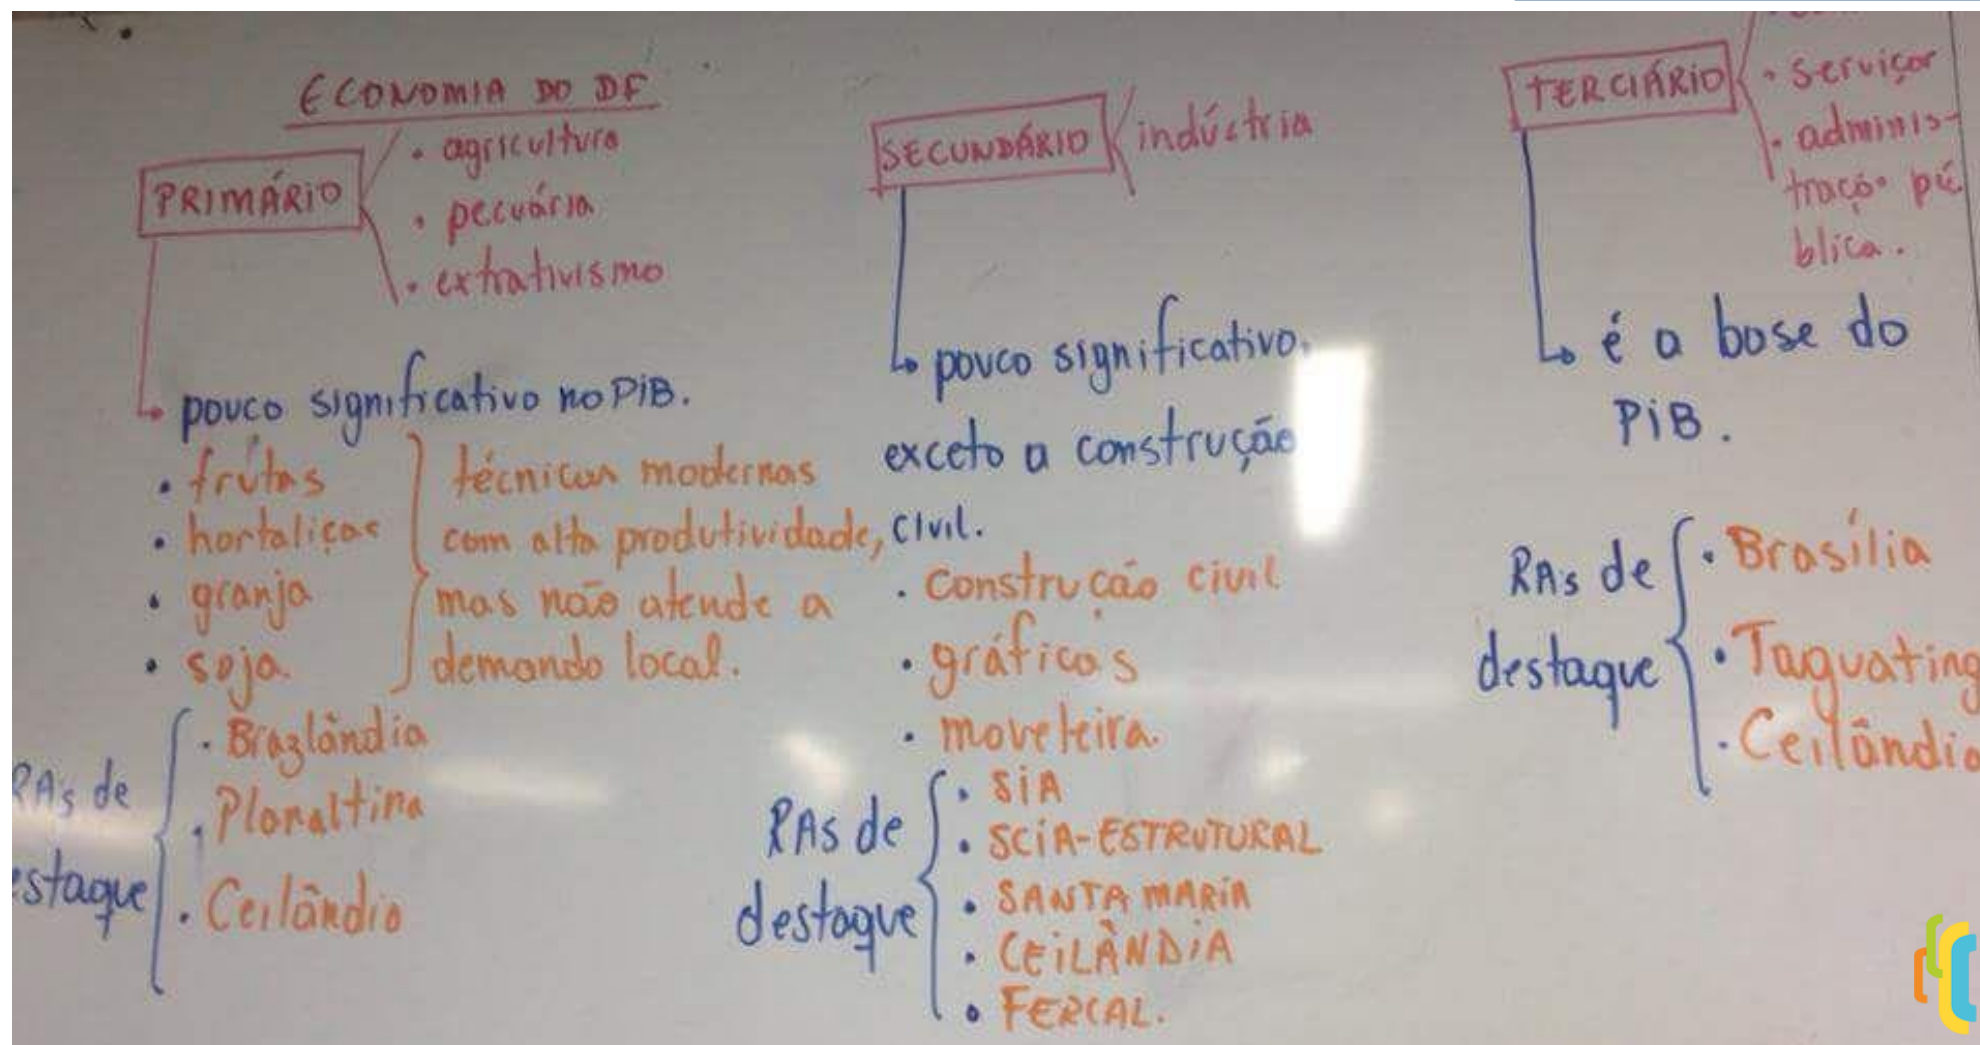 ECONOMIA DO DF
PRIMÁRIO
• agricultura
• pecuária
• extrativismo
pouco significativo no PIB.
• frutas
• hortaliças
• granja
• soja.
técnicas modernas
com alta produtividade,
mas não atende a
demanda local.
RAs de
estaque
• Brazlândia
• Planaltina
• Ceilândia
SECUNDÁRIO
indústria
pouco significativo,
exceto a construção
civil.
• Construção civil
• gráficas
• moveleira.
RAs de
destaque
• SIA
• SCIA-ESTRUTURAL
• SANTA MARIA
• CEILÂNDIA
• FERCAL.
TERCIÁRIO
• serviços
• adminis-
tração pú
blica.
é a base do
PIB.
RAs de
destaque
• Brasília
• Taguating
• Ceilândia